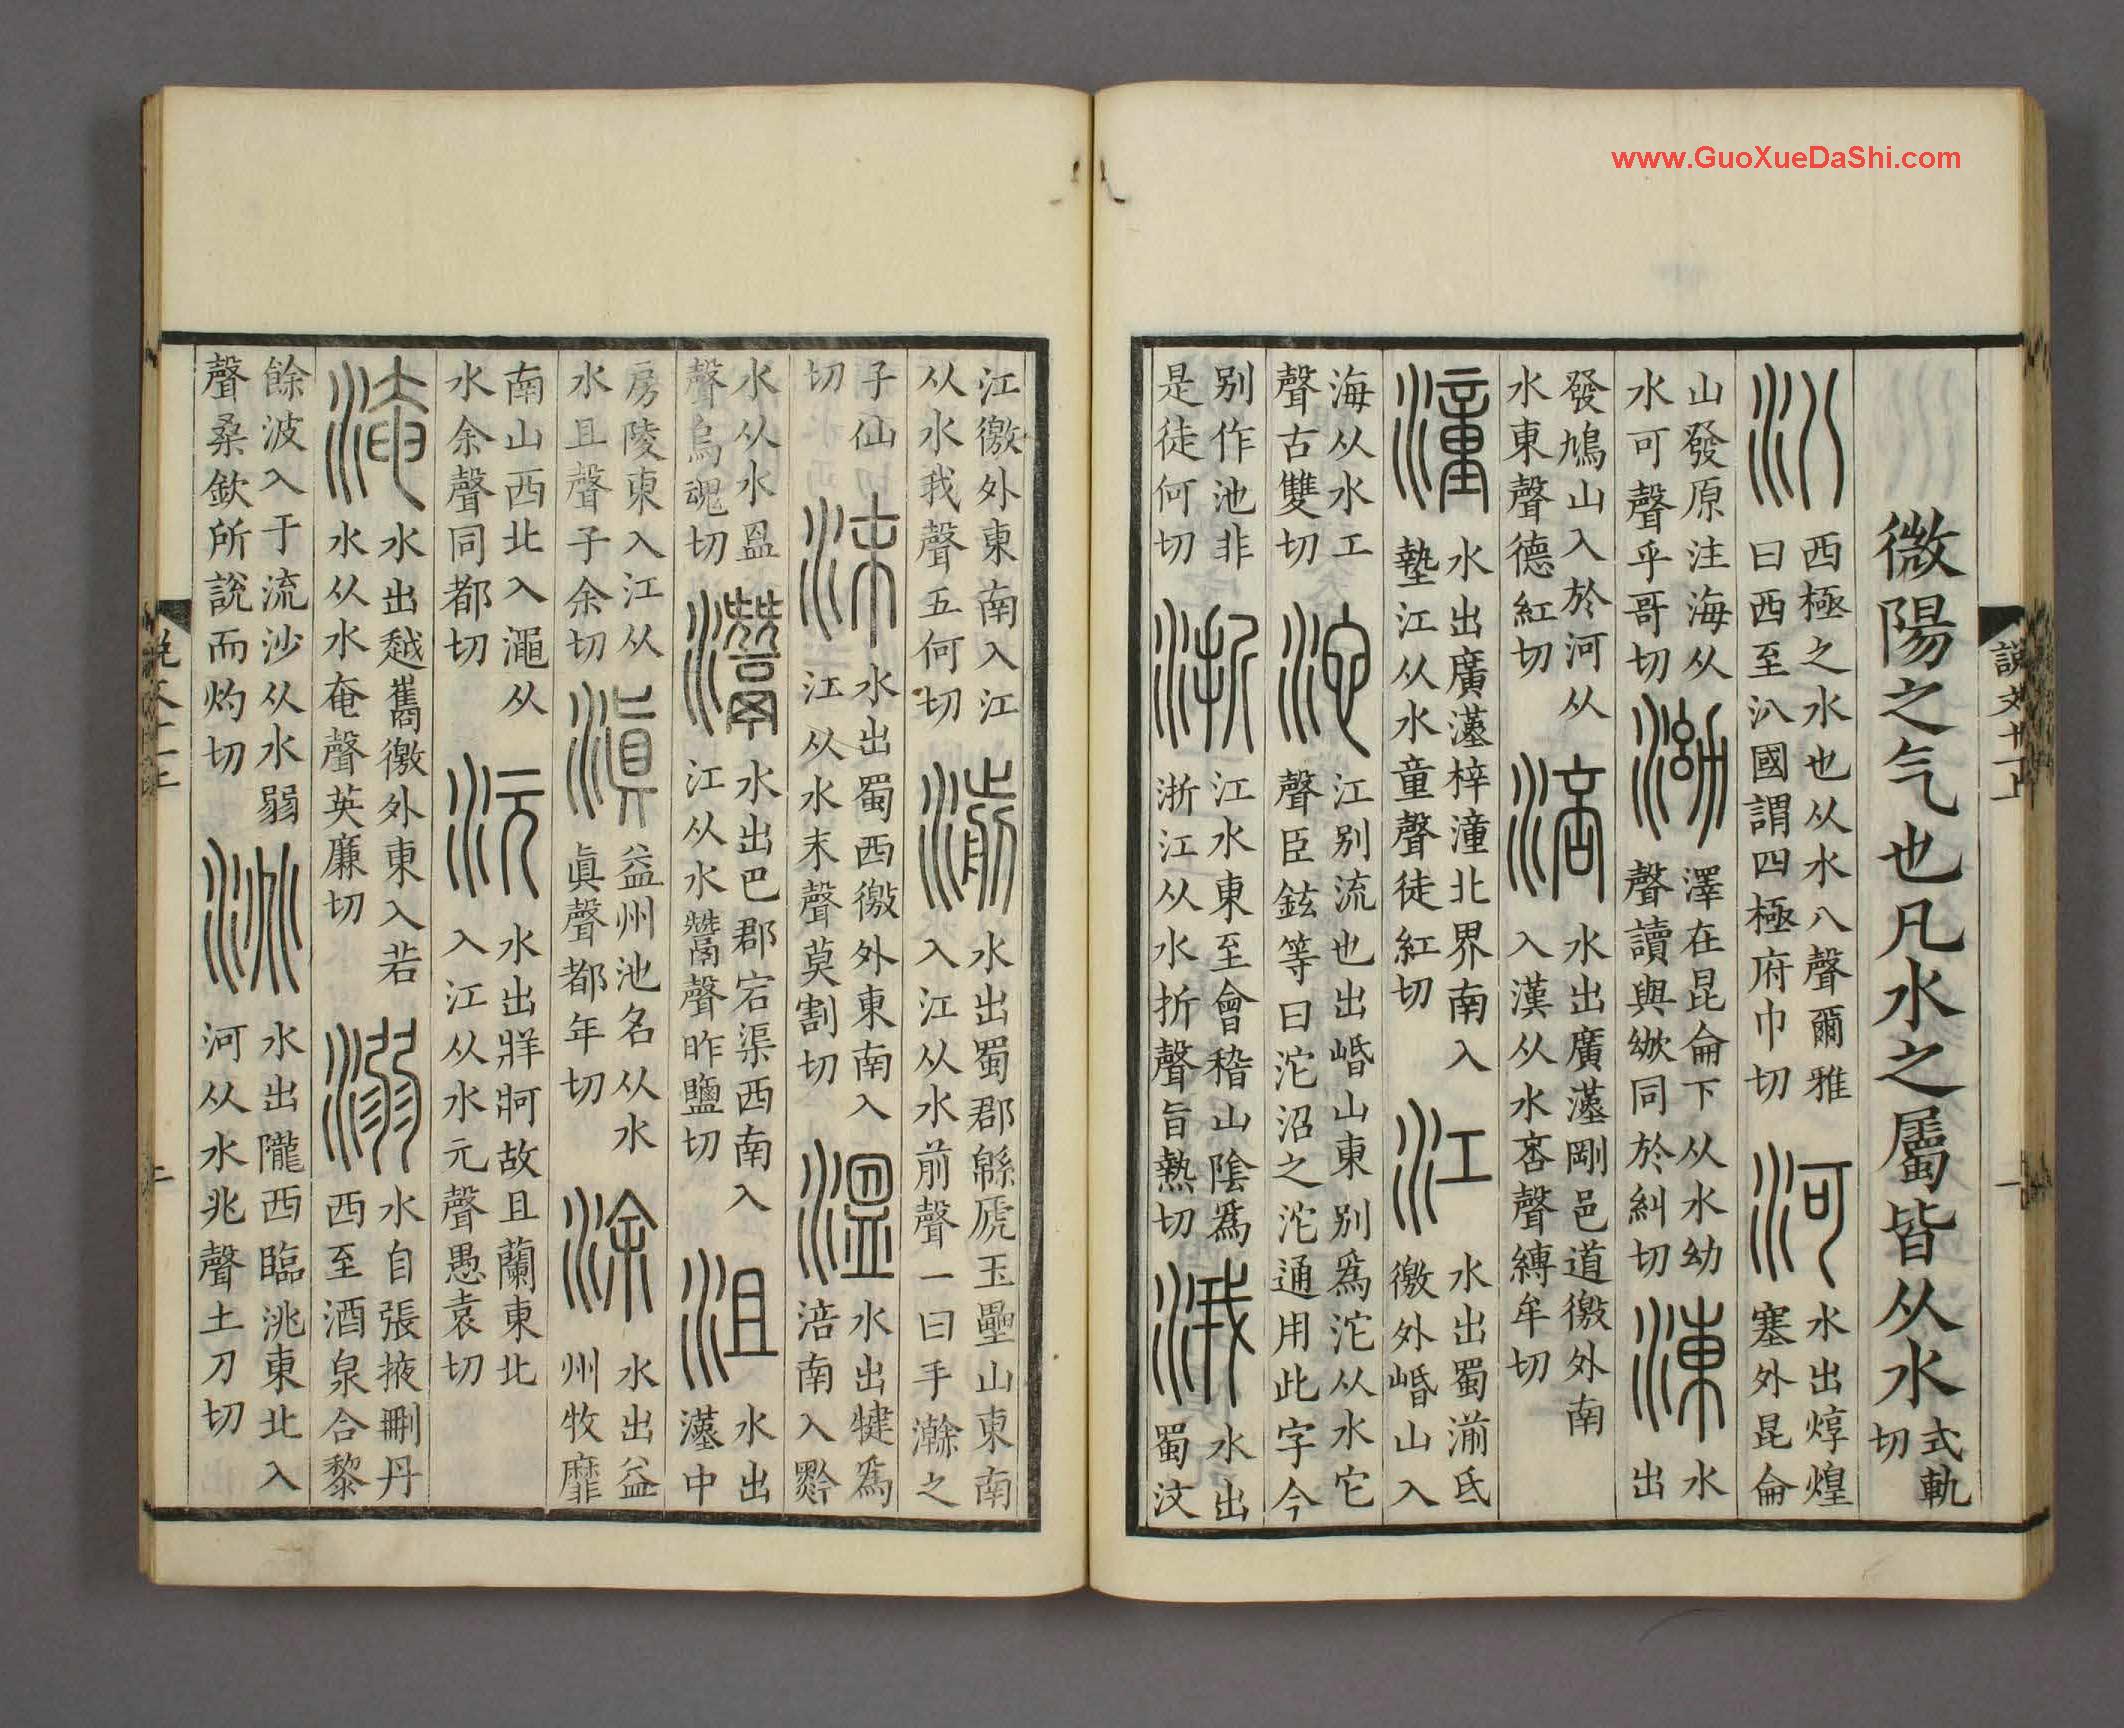 www.GuoXueDaShi.com
微陽之气也凡水之屬皆从水式軌切
汃西極之水也从水八聲爾雅曰西至汃國謂四極府巾切河水出焞煌塞外昆侖
山發原注海从水可聲乎哥切泑澤在昆侖下从水幼聲讀與㛦同於糾切涷水出
發鳩山入於河从水東聲德紅切涪水出廣漢剛邑道徼外南入漢从水咅聲縛牟切
潼水出廣漢梓潼北界南入墊江从水童聲徒紅切江水出蜀湔氐徼外崏山入
海从水工聲古雙切沱江别流也出崏山東别爲沱从水它聲臣鉉等曰沱沼之沱通用此字今
别作池非是徒何切浙江水東至會稽山陰爲浙江从水折聲旨熱切涐水出蜀汶
說文十一上
一
江徼外東南入江从水我聲五何切湔水出蜀郡緜虒玉壘山東南入江从水前聲一曰手瀚之
子仙切沫水出蜀西徼外東南入江从水末聲莫割切溫水出犍爲涪南入黔
水从水𥁕聲烏魂切灊水出巴郡宕渠西南入江从水鬵聲昨鹽切沮水出漢中
房陵東入江从水且聲子余切滇益州池名从水眞聲都年切涂水出益州牧靡
南山西北入澠从水余聲同都切沅水出牂牁故且蘭東北入江从水元聲愚袁切
淹水出越嶲徼外東入若水从水奄聲英廉切溺水自張掖刪丹西至酒泉合黎
餘波入于流沙从水弱聲桑欽所說而灼切洮水出隴西臨洮東北入河从水兆聲土刀切
說文十一上
二